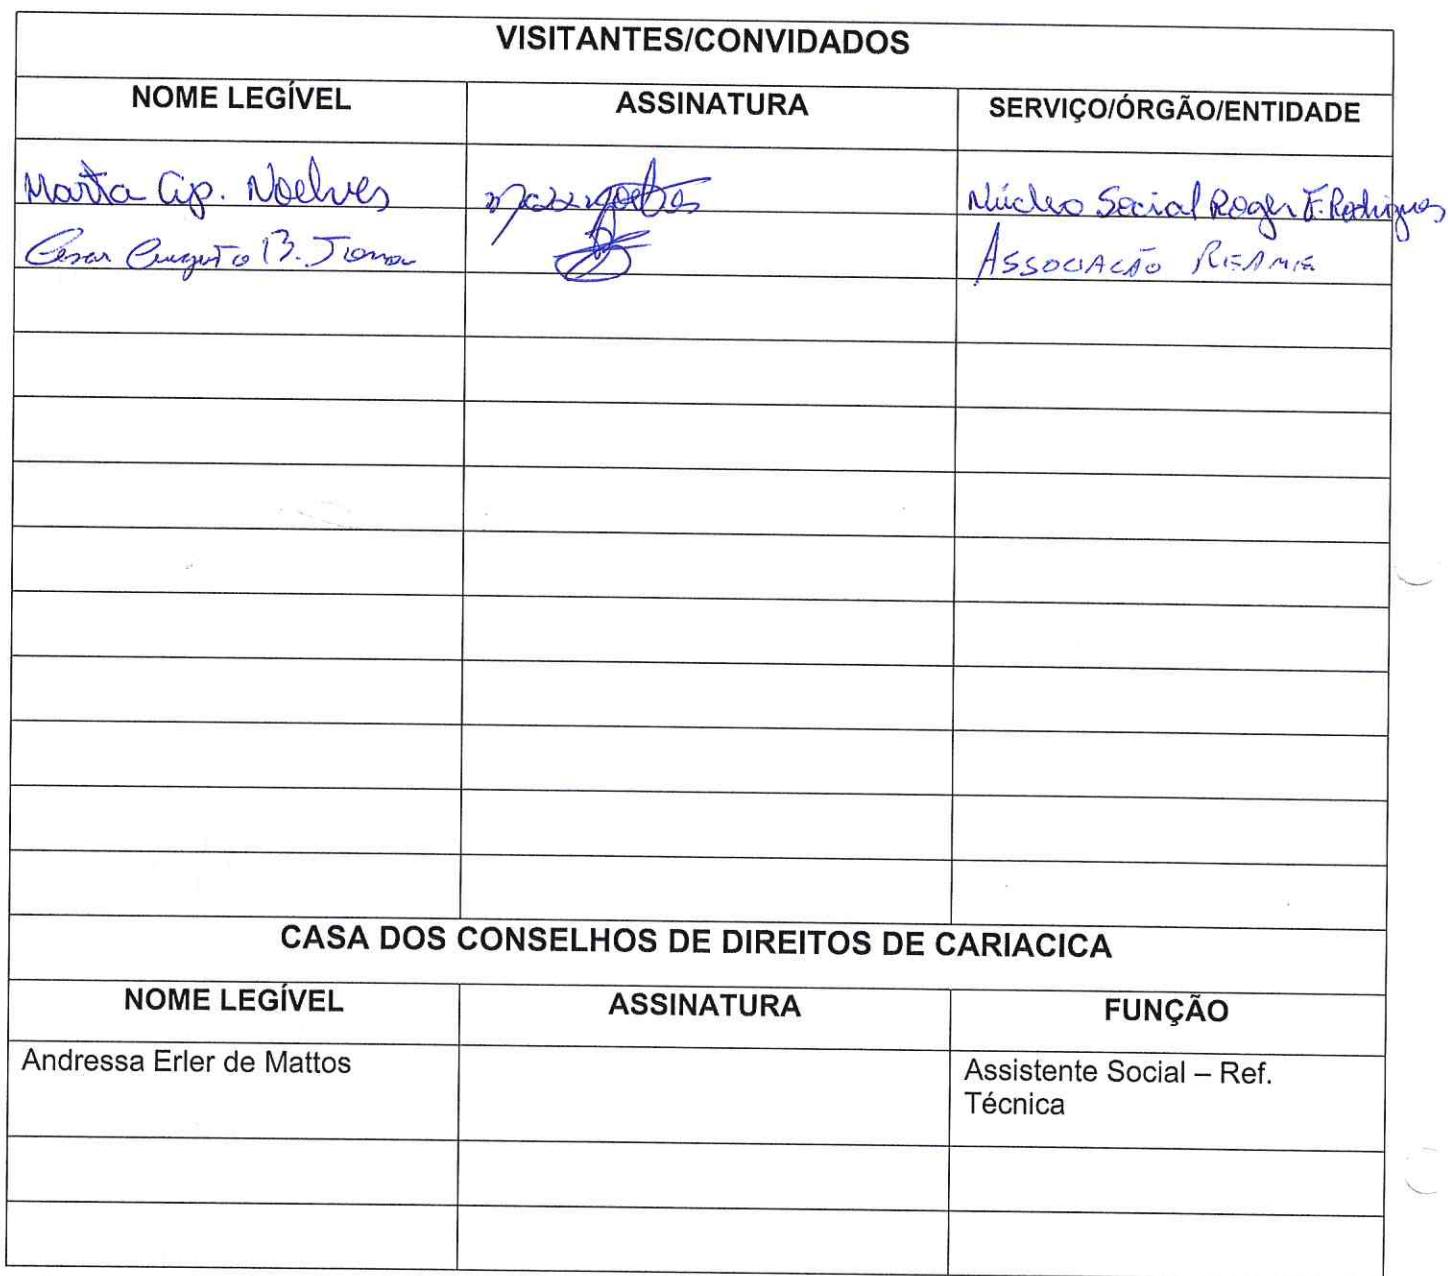 VISITANTES/CONVIDADOS
NOME LEGÍVEL ASSINATURA SERVIÇO/ÓRGÃO/ENTIDADE
Marta Ap. Núcleo Social Roger F. Rodrigues
Cesar Augusto B. ASSOCIAÇÃO REAME
CASA DOS CONSELHOS DE DIREITOS DE CARIACICA
NOME LEGÍVEL ASSINATURA FUNÇÃO
Andressa Erler de Mattos Assistente Social – Ref.
Técnica